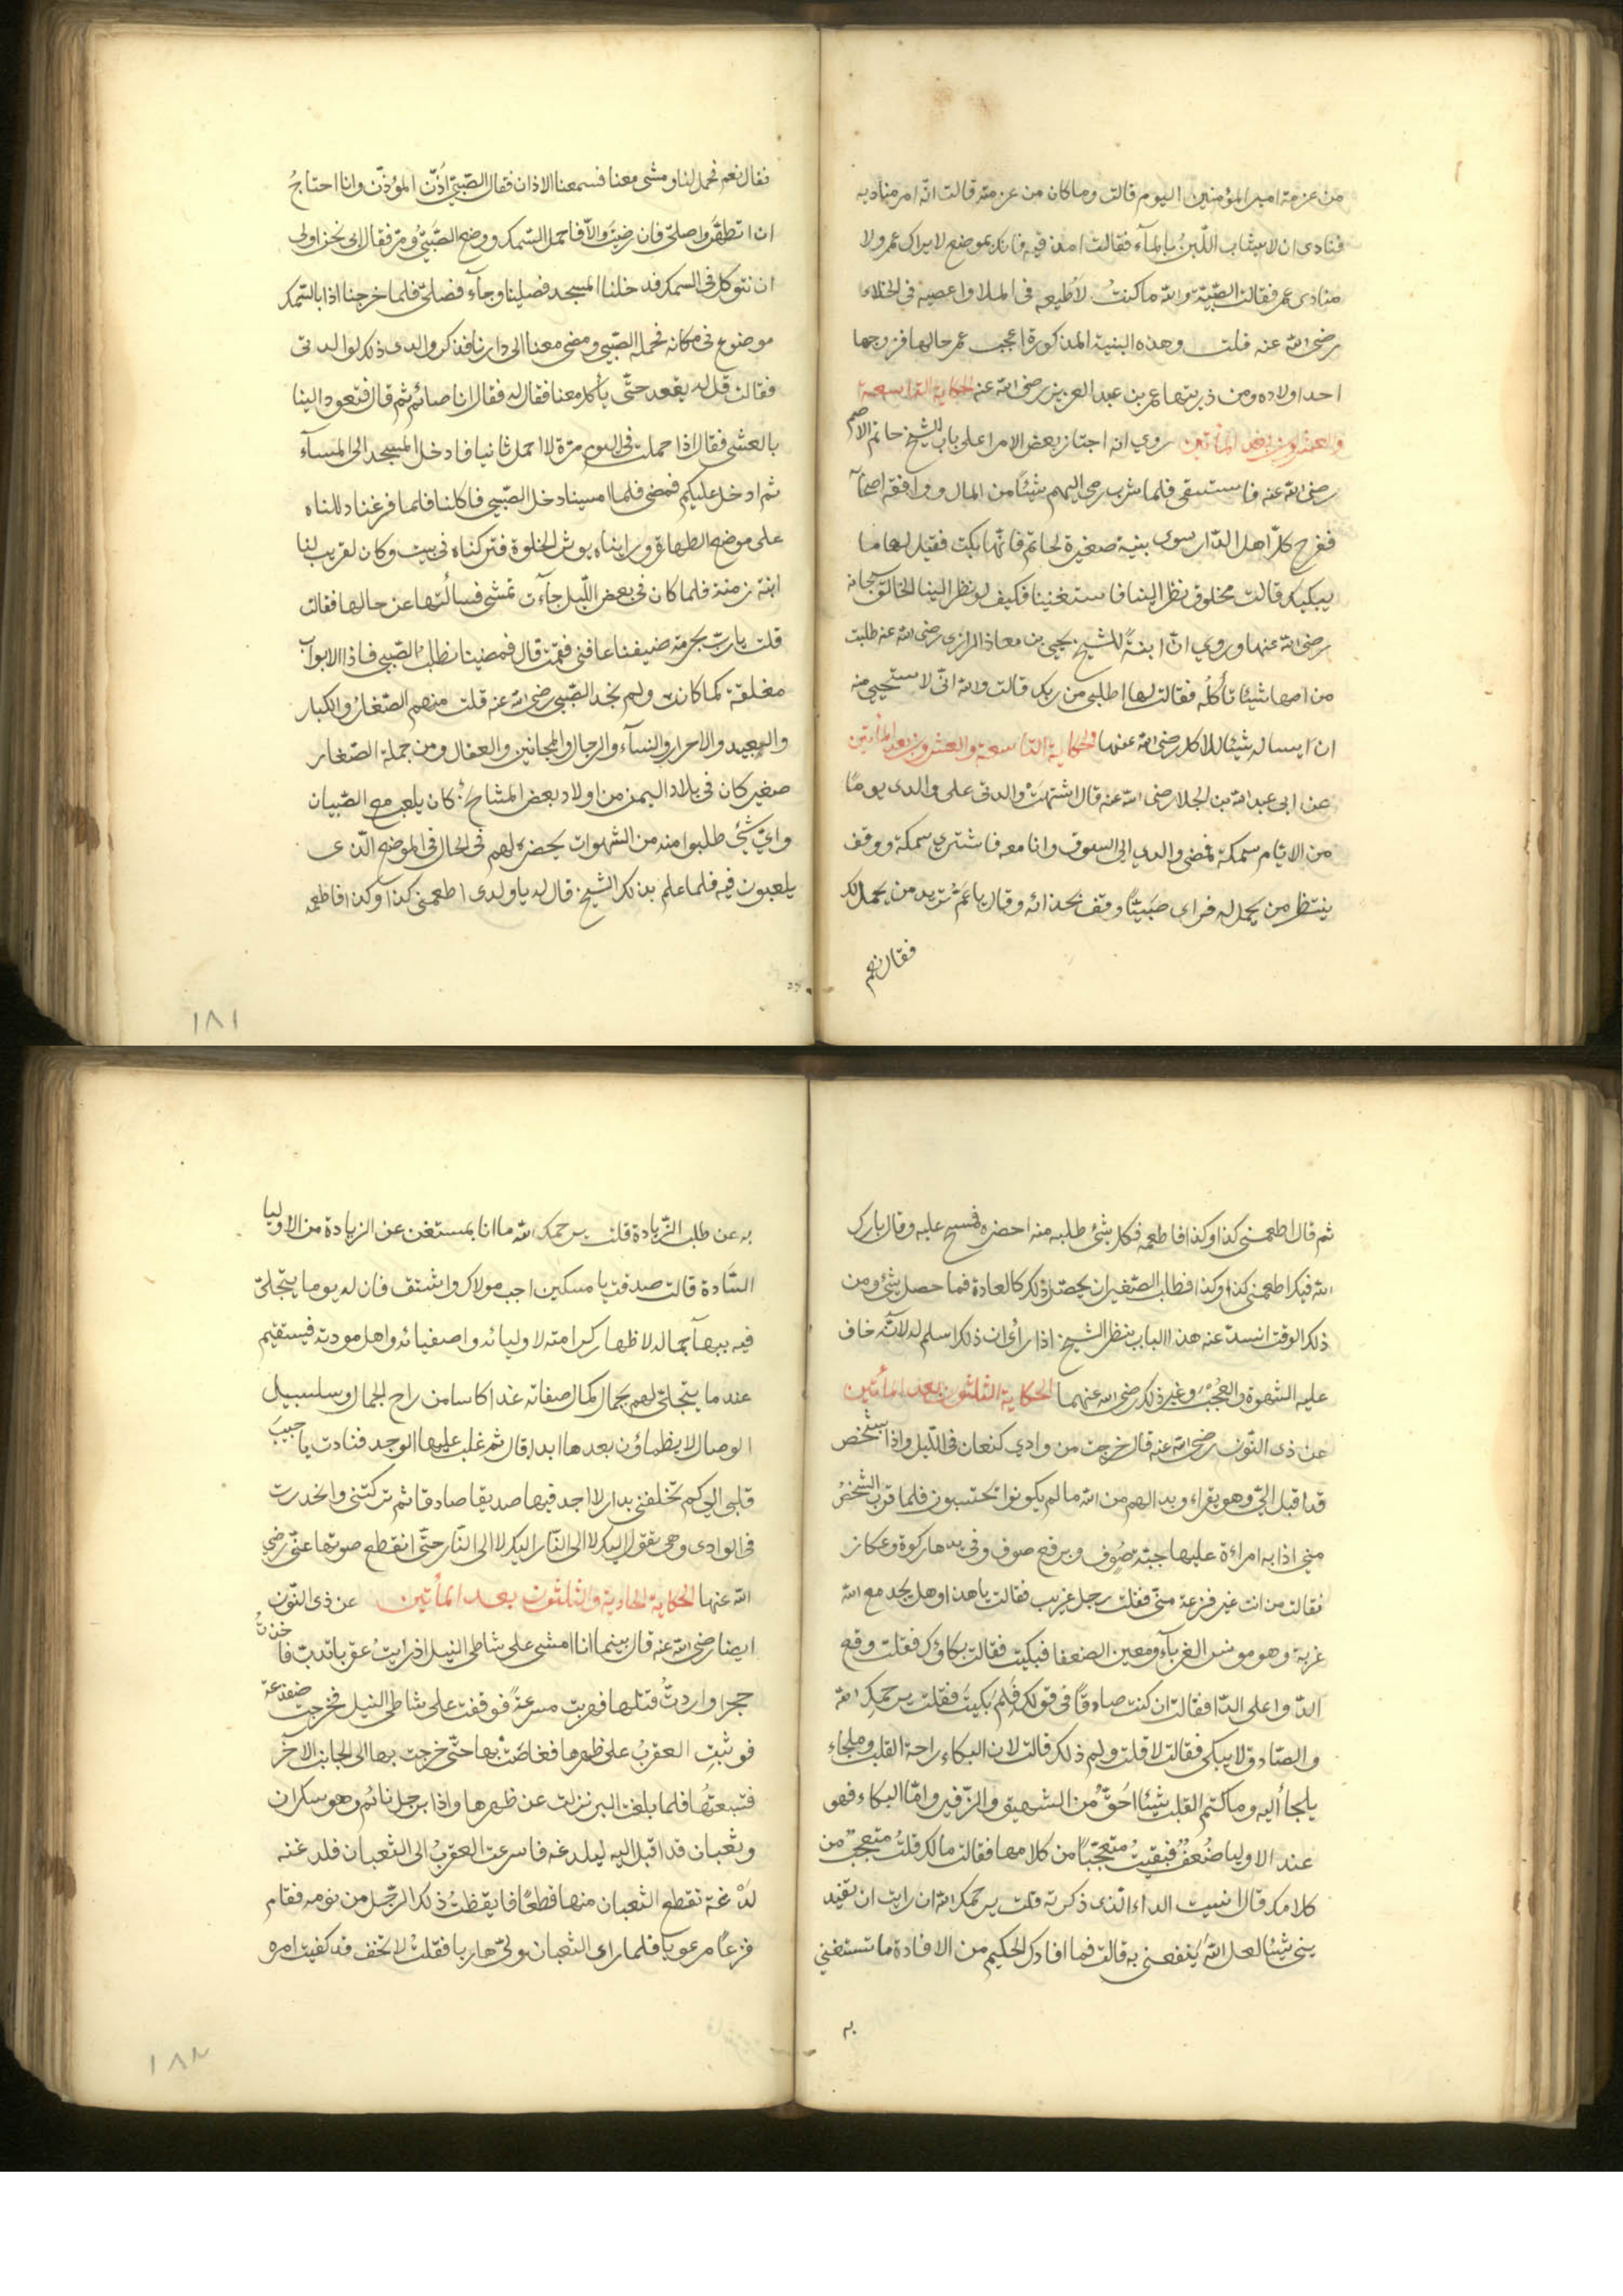 من عزمة امير المؤمنين اليوم قالت وما كان من عزمته قالت انه امر مناديه
فنادى ان لا يشاب اللبن بالمآء فقالت امذقيه فانك بموضع لا يراك عمر ولا
منادى عمر فقالت الصبية والله ما كنت لأطيعه فى الملا واعصيه فى الخلاء
رضى الله عنه قلت وهذه البنية المذكورة اعجب عمر حالها فزوجها
احد اولاده ومن ذريتها عمر بن عبد العزيز رضى الله عنه الحكاية التاسعة
والعشرون بعد المأتين روي انه اجتاز بعض الامرا على باب الشيخ حاتم الاصم
رضى الله عنه فاستسقى فلما شرب رمى اليهم شيئا من المال ووافقه اصحابه
ففرح كل اهل الدار سوى بنية صغيرة لحاتم فانها بكت فقيل لها ما
يبكيك قالت مخلوق نظر الينا فاستغنينا فكيف لو نظر الينا الخالق سبحانه
رضى الله عنها وروي ان ابنة للشيخ يحيى بن معاذ الرازى رضى الله عنه طلبت
من امها شيئا تأكله فقالت لها اطلبى من ربك قالت والله انى لاستحيى منه
ان اسأله شيئا للاكل رضى الله عنها الحكاية التاسعة والعشرون بعد المأتين
عن ابى عبد الله بن الجلا رضى الله عنه قال اشتهت والدتى على والدى يوما
من الايام سمكة فمضى والدي الى السوق وانا معه فاشترى سمكة ووقف
ينتظر من يحمل له فراى صبيا وقف بحذائه وقال يا عم تريد من يحمل لك
فقال نعم
فقال نعم فحمل لنا ومشى معنا فسمعنا الاذان فقال الصبى أذن المؤذن وانا احتاج
ان اتطهر واصلى فان رضيت والا فاحمل السمك ووضع الصبى ومر فقال ابى نحن اولى
ان نتوكل فى السمك فدخلنا المسجد فصلينا وجآء فصلى فلما خرجنا اذا بالسمك
موضوع فى مكانه فحمله الصبى ومضى معنا الى دارنا فذكر والدى ذلك لوالدتى
فقالت قل له يقعد حتى يأكل معنا فقال له فقال انا صائم ثم قال فتعود الينا
بالعشى فقال اذا حملت فى اليوم مرة لا احمل ثانيا فادخل المسجد الى المسآء
ثم ادخل عليكم فمضى فلما امسينا دخل الصبى فاكلنا فلما فرغنا دللناه
على موضع الطهارة ورايناه يوثر الخلوة فتركناه فى بيت وكان لقريب لنا
ابنة زمنة فلما كان فى بعض الليل جآءت تمشى فسألتها عن حالها فقالت
قلت يا رب بحرمة ضيفنا عافنى فقمت قال فمضينا نطلب الصبى فاذا الابواب
مغلقة كما كانت ولم نجد الصبى رضى الله عنه قلت منهم الصغار والكبار
والعبيد والاحرار والنسآء والرجال والمجانين والعقال ومن جملة الصغار
صغير كان فى بلاد اليمن من اولاد بعض المشايخ كان يلعب مع الصبيان
واى شئ طلبوا منه من الشهوات يحضره لهم فى الحال فى الموضع الذى
يلعبون فيه فلما علم بذلك الشيخ قال له يا ولدى اطعمنى كذا وكذا فاطعمه
١٨١
ثم قال اطعمنى كذا وكذا فاطعمه فكل شئ طلبه منه احضره فمسح عليه وقال بارك
الله فيك اطعمنى كذا وكذا فطلب الصغير ان يحصل ذلك كالعادة فما حصل شئ ومن
ذلك الوقت انسد عنه هذا الباب بنظر الشيخ اذا رأى ان ذلك اسلم له لانه خاف
عليه الشهوة والعجب وغير ذلك رضى الله عنهما الحكاية الثلثون بعد المأتين
عن ذى النون رضى الله عنه قال خرجت من وادي كنعان فى الليل واذا بشخص
قد اقبل الى وهو يقراء وبدا لهم من الله ما لم يكونوا يحتسبون فلما قرب الشخص
منى اذا به امراءة عليها جبة صوف وبرقع صوف وفى يدها ركوة وعكاز
فقالت من انت غير فزعة منى فقلت رجل غريب فقالت يا هذا وهل يجد مع الله
غربة وهو مونس الغربآء ومعين الضعفا فبكيت فقالت بكاؤك فقلت وقع
الدوا على الدا فقالت ان كنت صادقا فى قولك فلم بكيت فقلت يرحمك الله
والصادق لا يبكى فقالت لا قلت ولم ذلك قالت لان البكاء راحة القلب وملجاء
يلجأ اليه وما كتم القلب شيئا احق من الشهيق والزفير واما البكاء فهو
عند الاوليا ضعف فبقيت متعجبا من كلامها فقالت ما لك قلت متعجب من
كلامك قال انسيت الداء الذى ذكرته قلت يرحمك الله ان رايت ان تفيد
ينى شيئا لعل الله ينفعنى به قالت فما افادك الحكيم من الافادة ما تستغنى
به
به عن طلب الزيادة قلت يرحمك الله ما انا بمستغن عن الزيادة من الاوليا
السادة قالت صدقت يا مسكين احب مولاك واشتق فان له يوما يتجلى
فيه ببهآء جماله لاظهار كرامته لاوليائه واصفيائه واهل مودته فيسقيهم
عندما يتجلى لهم بجمال كمال صفاته غدا كاسا من راح الجمال وسلسبيل
الوصال لا يظماؤن بعدها ابدا قال ثم غلب عليها الوجد فنادت يا حبيب
قلبى الى كم تخلفنى بدار لا اجد فيها صديقا صادقا ثم تركتنى وانحدرت
فى الوادى وهى تقول اليك لا الى النار اليك لا الى النار حتى انقطع صوتها عنى رضى
الله عنها الحكاية الحادية والثلثون بعد المأتين عن ذى النون
ايضا رضى الله عنه قال بينما انا امشى على شاطى النيل اذ رايت عقربا تدب فاخذت
حجرا واردت قتلها فهربت مسرعة فوقفت على شاطى النيل فخرجت ضفدعة
فوثبت العقرب على ظهرها فغاضت بها حتى خرجت بها الى الجانب الاخر
فتبعتها فلما بلغت البر نزلت عن ظهرها واذا برجل نائم وهو سكران
وثعبان قد اقبل اليه ليلدغه فاسرعت العقرب الى الثعبان فلدغته
لدغة تقطع الثعبان منها قطعا فايقظت ذلك الرجل من نومه فقام
فزعا مرعوبا فلما راى الثعبان ولى هاربا فقلت لا تخف قد كفيت امره
١٨٢